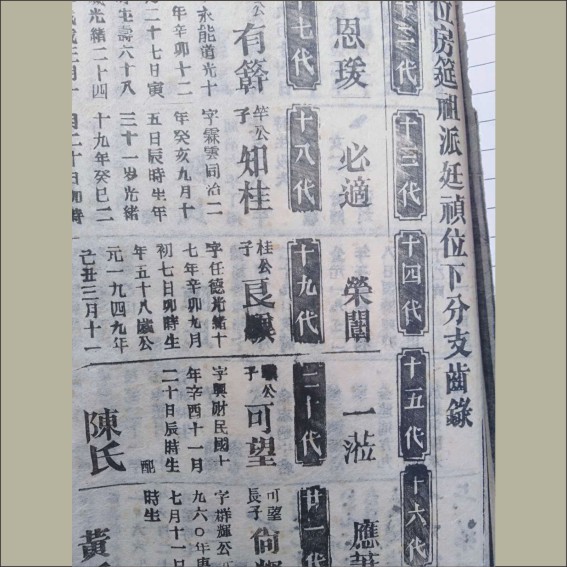 位房筵祖派廷禎位下分支齒錄
十三代
十四代
十五代
十六代
恩
必適
榮閶
一
應
十七代
十八代
十九代
二十代
廿一代
公
有
永能道光十
年辛卯十二
二十七日寅
生壽六十八
光緒二十四
竿公
子
知桂
字霖雲同治二
年癸亥九月十
五日辰時生年
三十一岁光緒
十九年癸巳二
月二十日卯時
桂公
子
良
字任德光緒十
七年辛卯九月
初七日卯時生
年五十八歲公
元一九四九年
己丑三月十一
公
子
可望
字興財民國十
年辛酉十一月
二十日辰時生
配
陳氏
可望
長子
尚輝
字群輝公
九六〇年庚
七月十一日
時生
黃